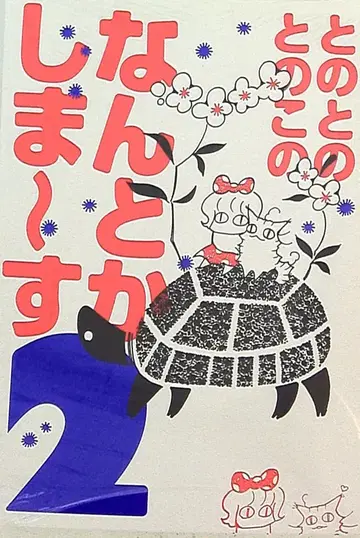 とのとの
とのこの
なんとか
しま〜す
2